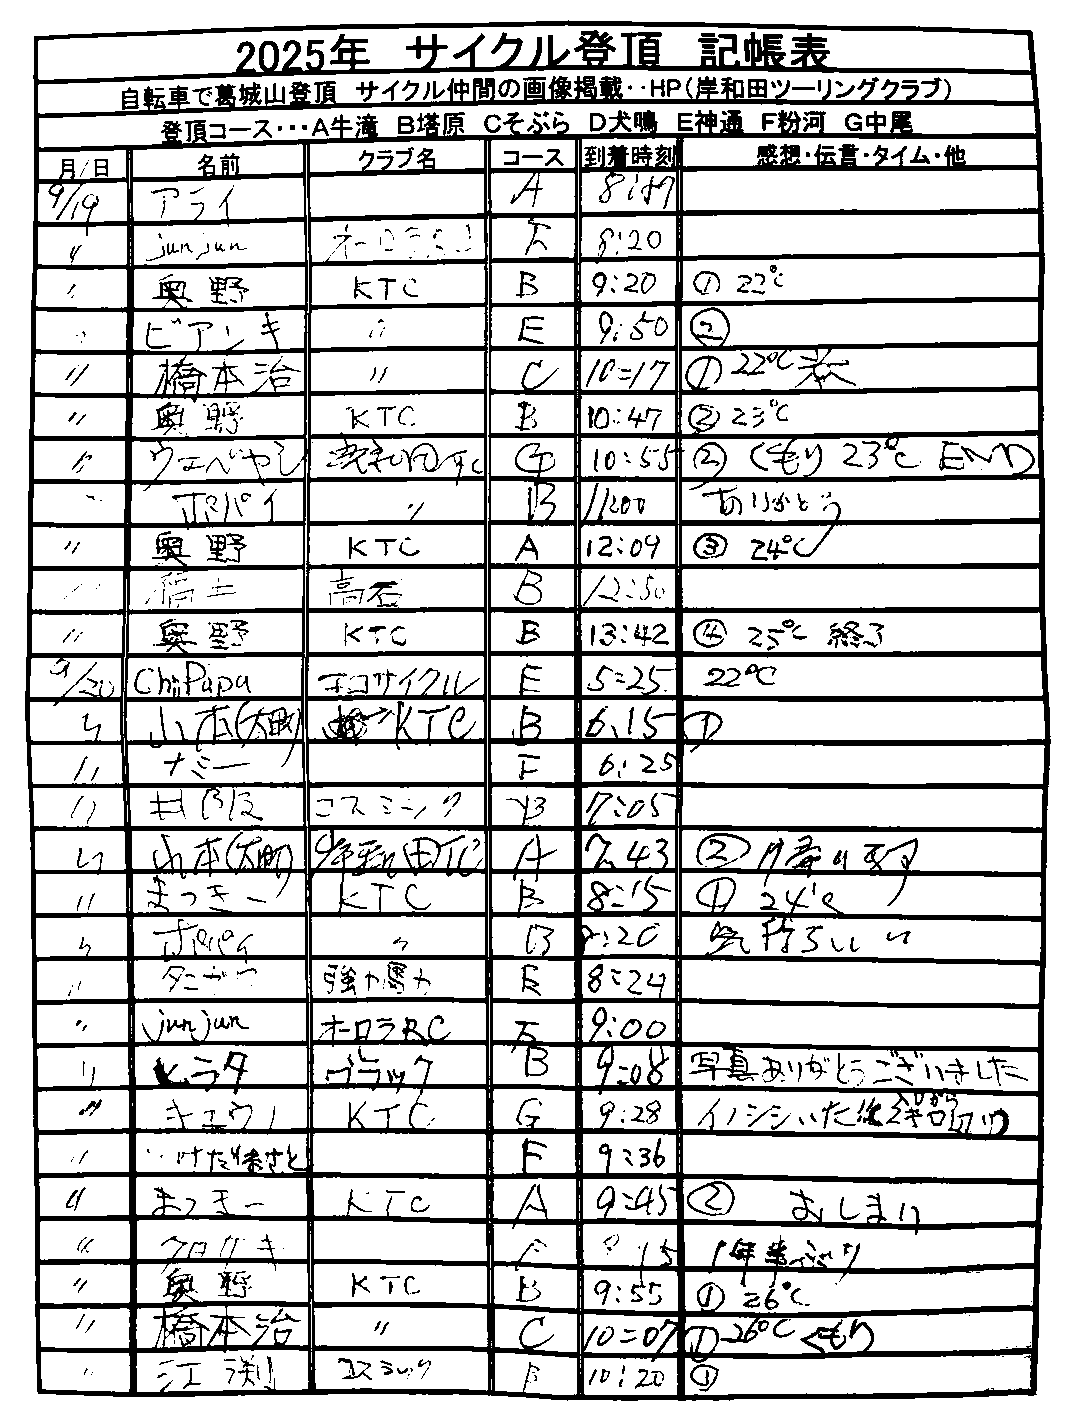 2025年 サイクル登頂 記帳表
自転車で葛城山登頂 サイクル仲間の画像掲載‥HP(岸和田ツーリングクラブ)
登頂コース‥･A牛滝 B塔原 Cそぶら D犬鳴 E神通 F粉河 G中尾
月/日 名前 クラブ名 コース 到着時刻 感想・伝言・タイム・他
9/19 アライ A 8:47
〃 junjun オーロラ 8:20
〃 奥野 KTC B 9:20 ① 22℃
〃 ビアンキ 〃 E 9:50 ②
〃 橋本治 〃 C 10=17 ① 22℃
〃 奥野 KTC B 10:47 ② 23℃
〃 ウエベヤシ G 10:55 ② くもり 23℃ END
〃 ポパイ 〃 B 11:00 ありがとう
〃 奥野 KTC A 12:09 ③ 24℃
〃 高石 B 12:50
〃 奥野 KTC B 13:42 ④ 25℃ 終了
9/20 ChiiPapa チコサイクル E 5=25 22℃
〃 山本(大町) KTC B 6.15 ①
〃 ナミー F 6:25
〃 井阪 コスミック B 7:05
〃 山本(大町) 岸和田TC A 7.43 ② 帰ります
〃 まっきー KTC B 8=15 ① 24℃
〃 ポパイ 〃 B 8:20
〃 強力馬力 E 8=24
〃 junjun オーロラRC 9:00
〃 ヒラタ ブラック B 9:08 写真ありがとうございました
〃 キュウノ KTC G 9:28 イノシシいた
〃 いけだまさと F 9:36
〃 まっきー KTC A 9=45 ② おしまい
〃 クロサキ F 15 1年半ぶり
〃 奥野 KTC B 9:55 ① 26℃
〃 橋本治 〃 C 10=07 ① 26℃ くもり
〃 江渕 コスミック 10:20 ①